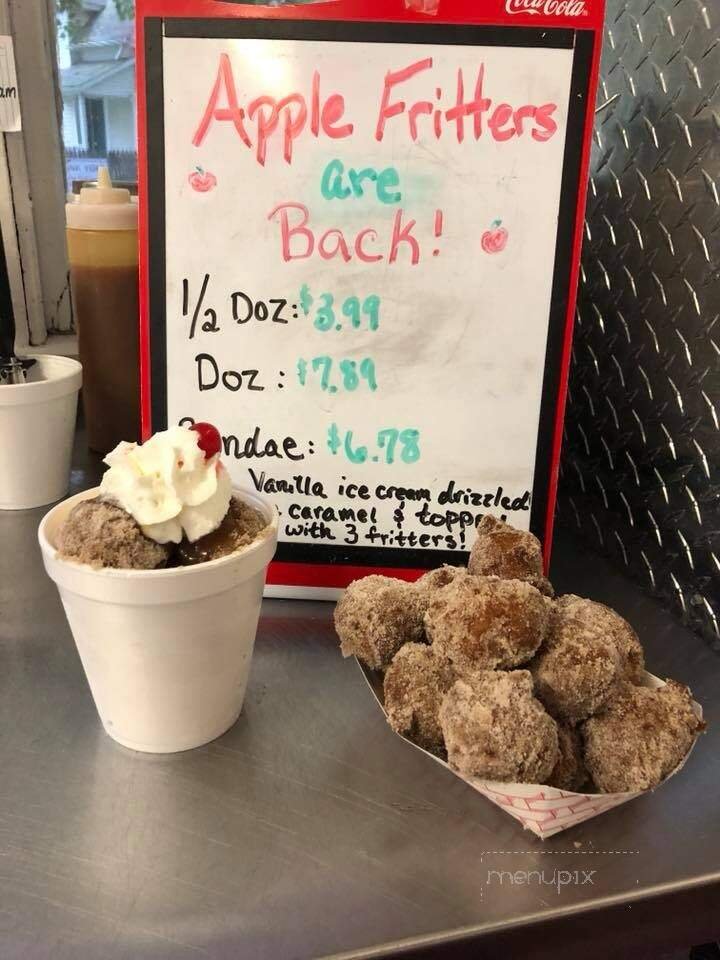 Coca-Cola
am
Apple Fritters
are
Back!
1/2 Doz: $3.99
Doz: $7.89
ndae: $6.78
Vanilla ice cream drizzled
caramel & topp
with 3 fritters!
menupix